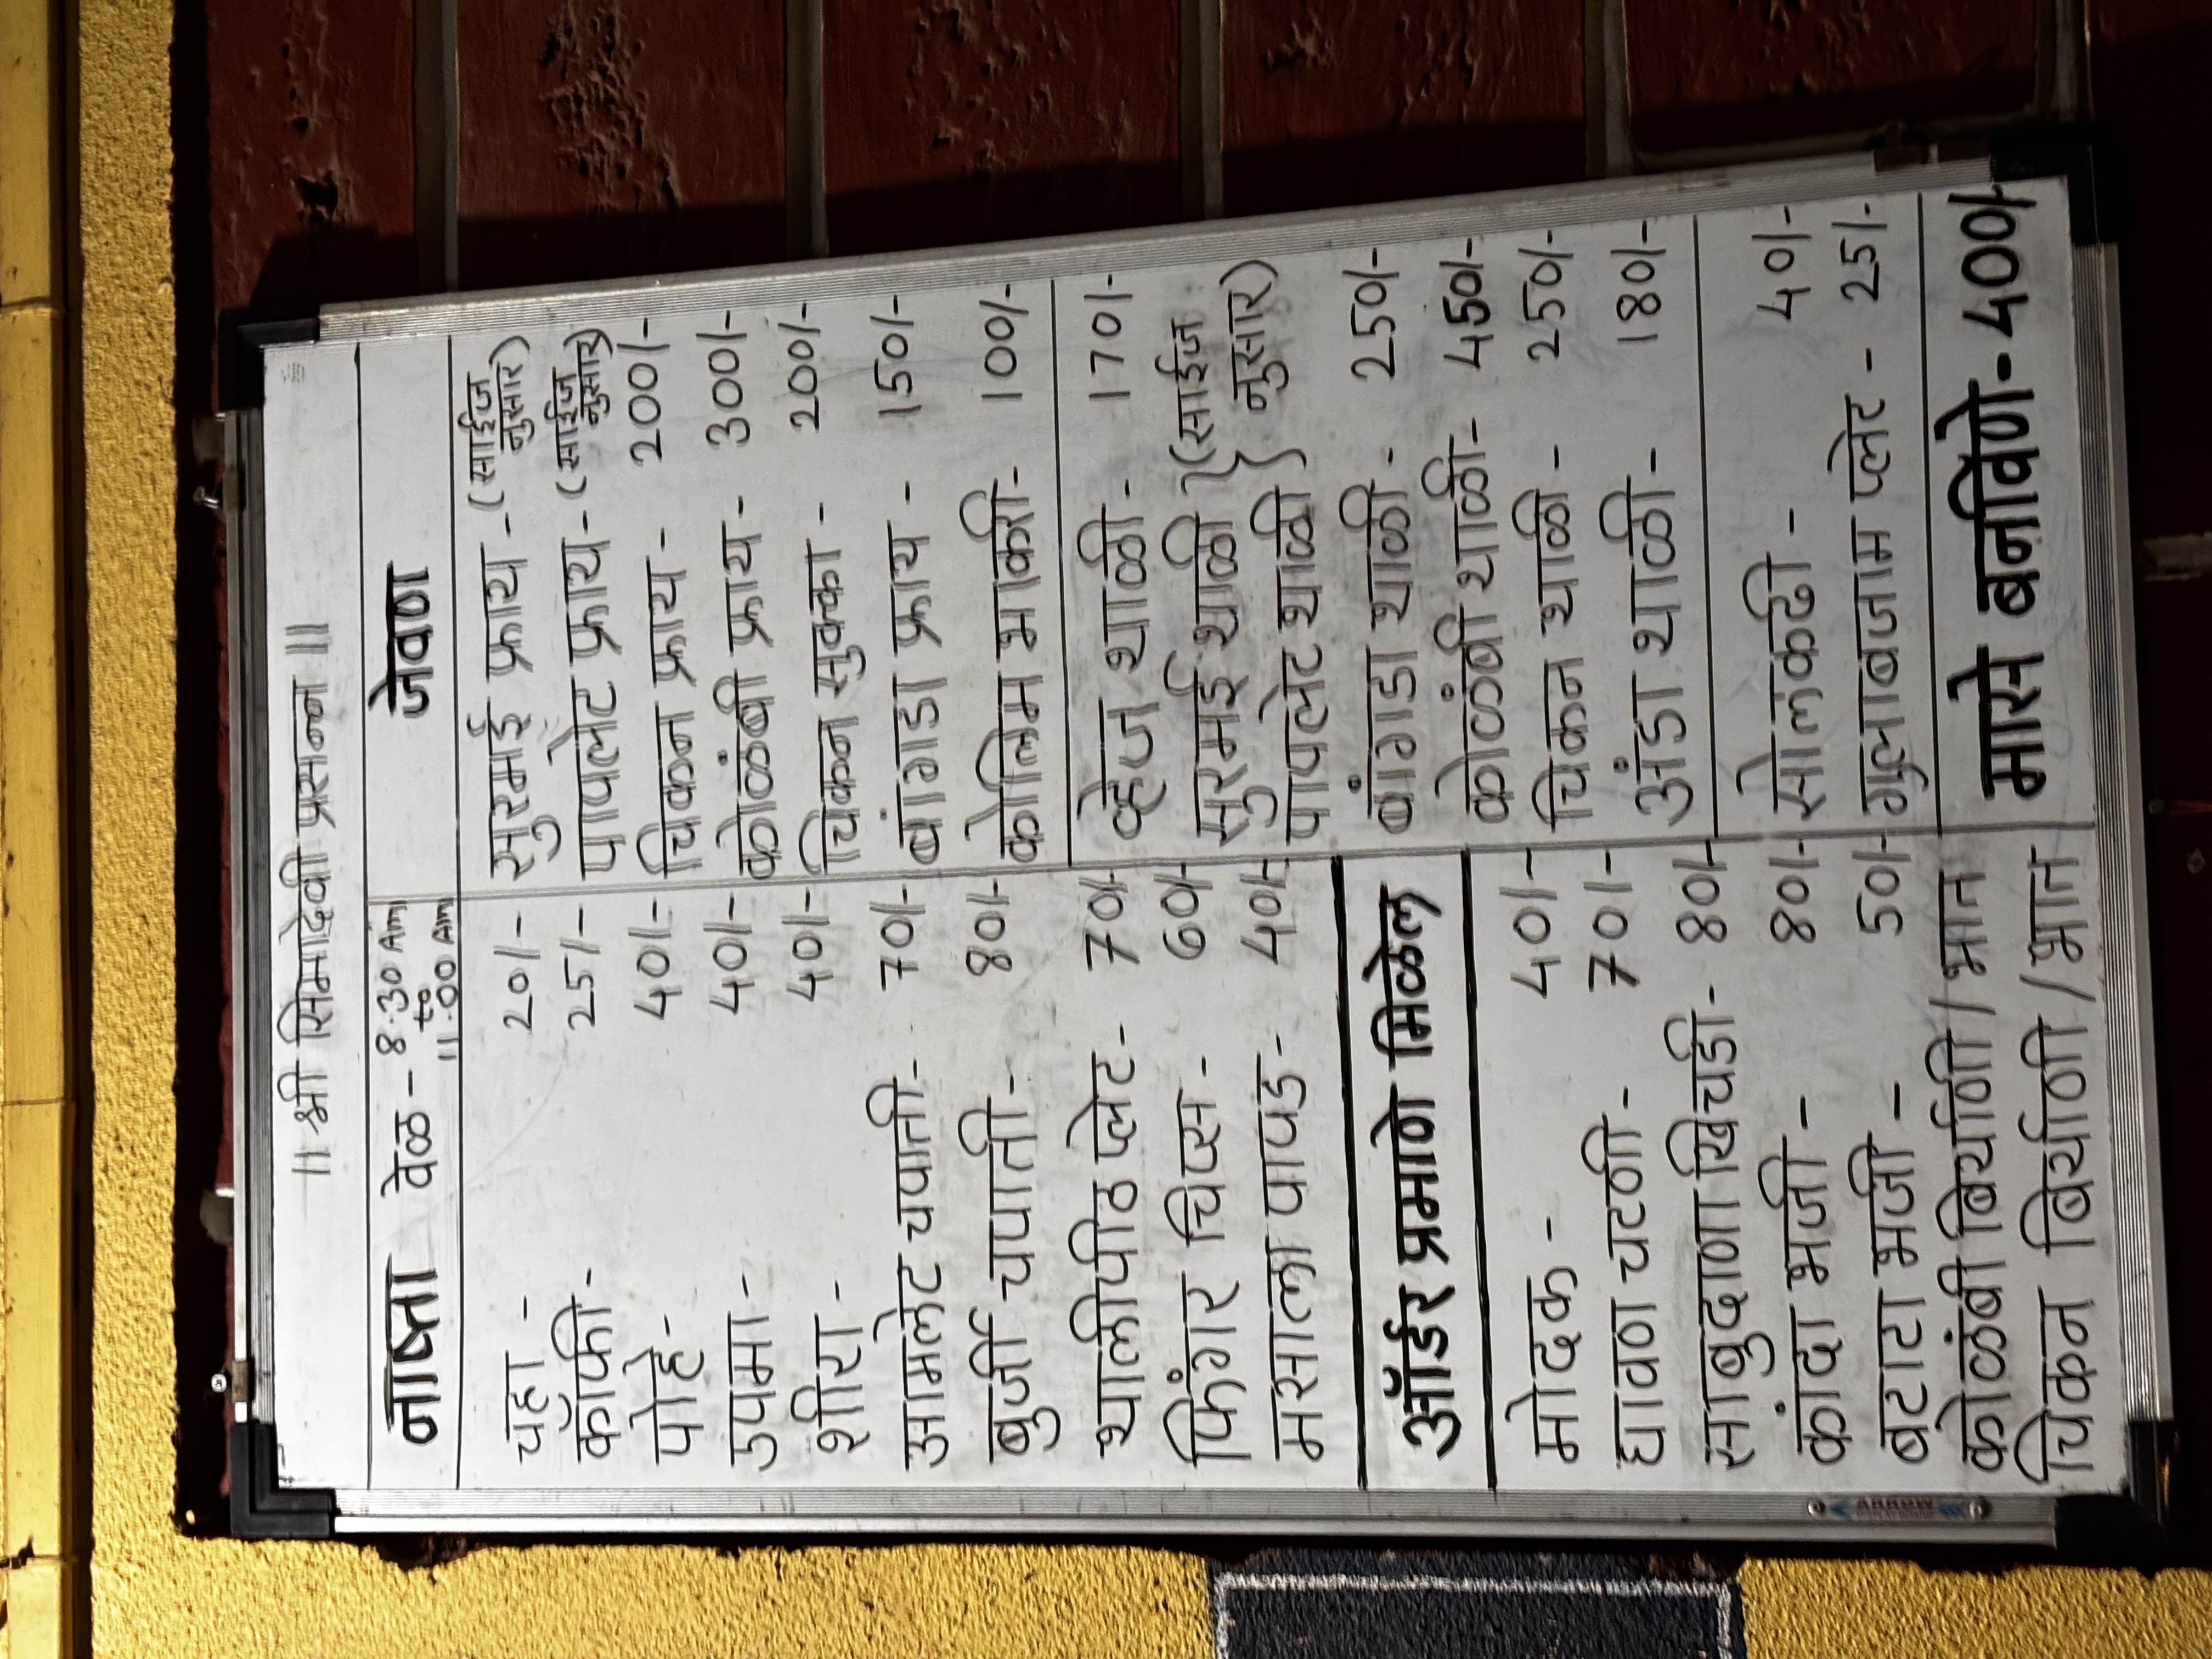 ॥ श्री सिमादेवी प्रसन्न ॥
नाष्ता वेळ - 8:30 Am
to
11:00 Am
चहा - 20/-
कॉफी - 25/-
पोहे - 40/-
उपमा - 40/-
शीरा - 40/-
आमलेट चपाती - 70/-
बुर्जी चपाती - 80/-
थालीपीठ प्लेट - 70/-
फिंगर चिप्स - 60/-
मसाला पापड - 40/-
ऑर्डर प्रमाणे मिळेल
मोदक - 40/-
घावण चटणी - 70/-
साबुदाणा खिचडी - 80/-
कांदा भजी - 80/-
बटाटा भजी - 50/-
कोळंबी बिर्याणी / भात
चिकन बिर्याणी / भात
जेवण
सुरमाई फ्राय - (साईज नुसार)
पापलेट फ्राय - (साईज नुसार)
चिकन फ्राय - 200/-
कोळंबी फ्राय - 300/-
चिकन सुक्का - 200/-
बांगडा फ्राय - 150/-
कोलिम भाकरी - 100/-
व्हेज थाळी - 170/-
सुरमई थाळी } (साईज
पापलेट थाळी } नुसार)
बांगडा थाळी - 250/-
कोळंबी थाळी - 450/-
चिकन थाळी - 250/-
अंडा थाळी - 180/-
सोलकढी - 40/-
गुलाबजाम प्लेट - 25/-
मासे बनविणे - 400/-
ARROW